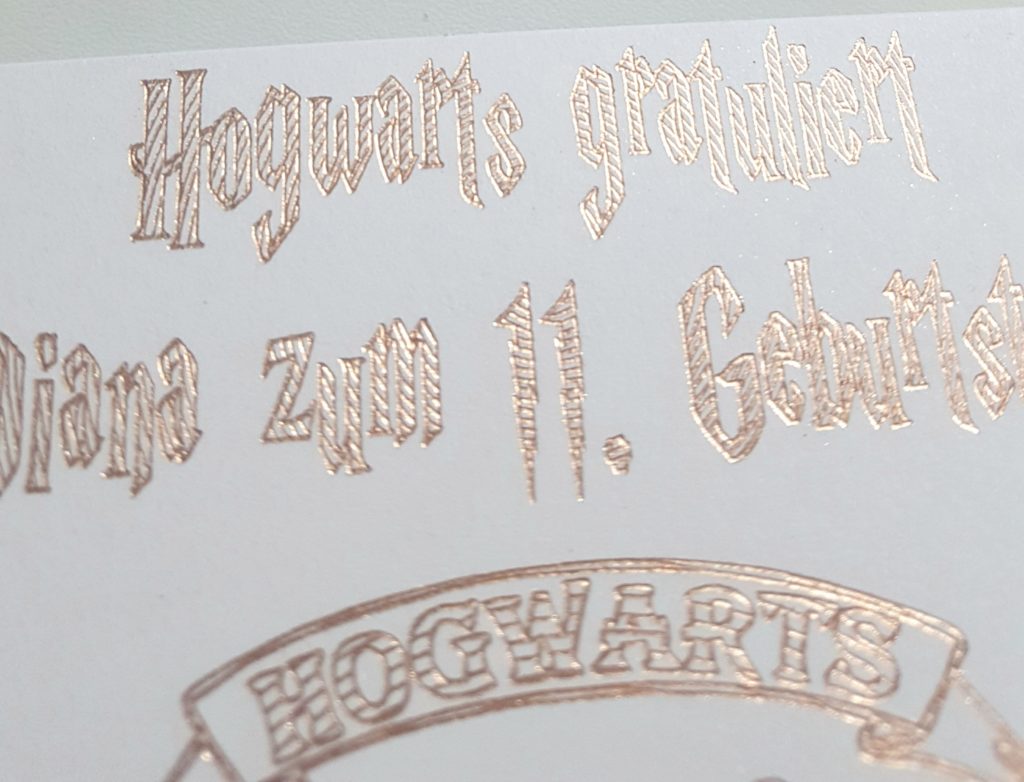 Hogwarts gratuliert
Diana zum 11. Geburts
HOGWARTS